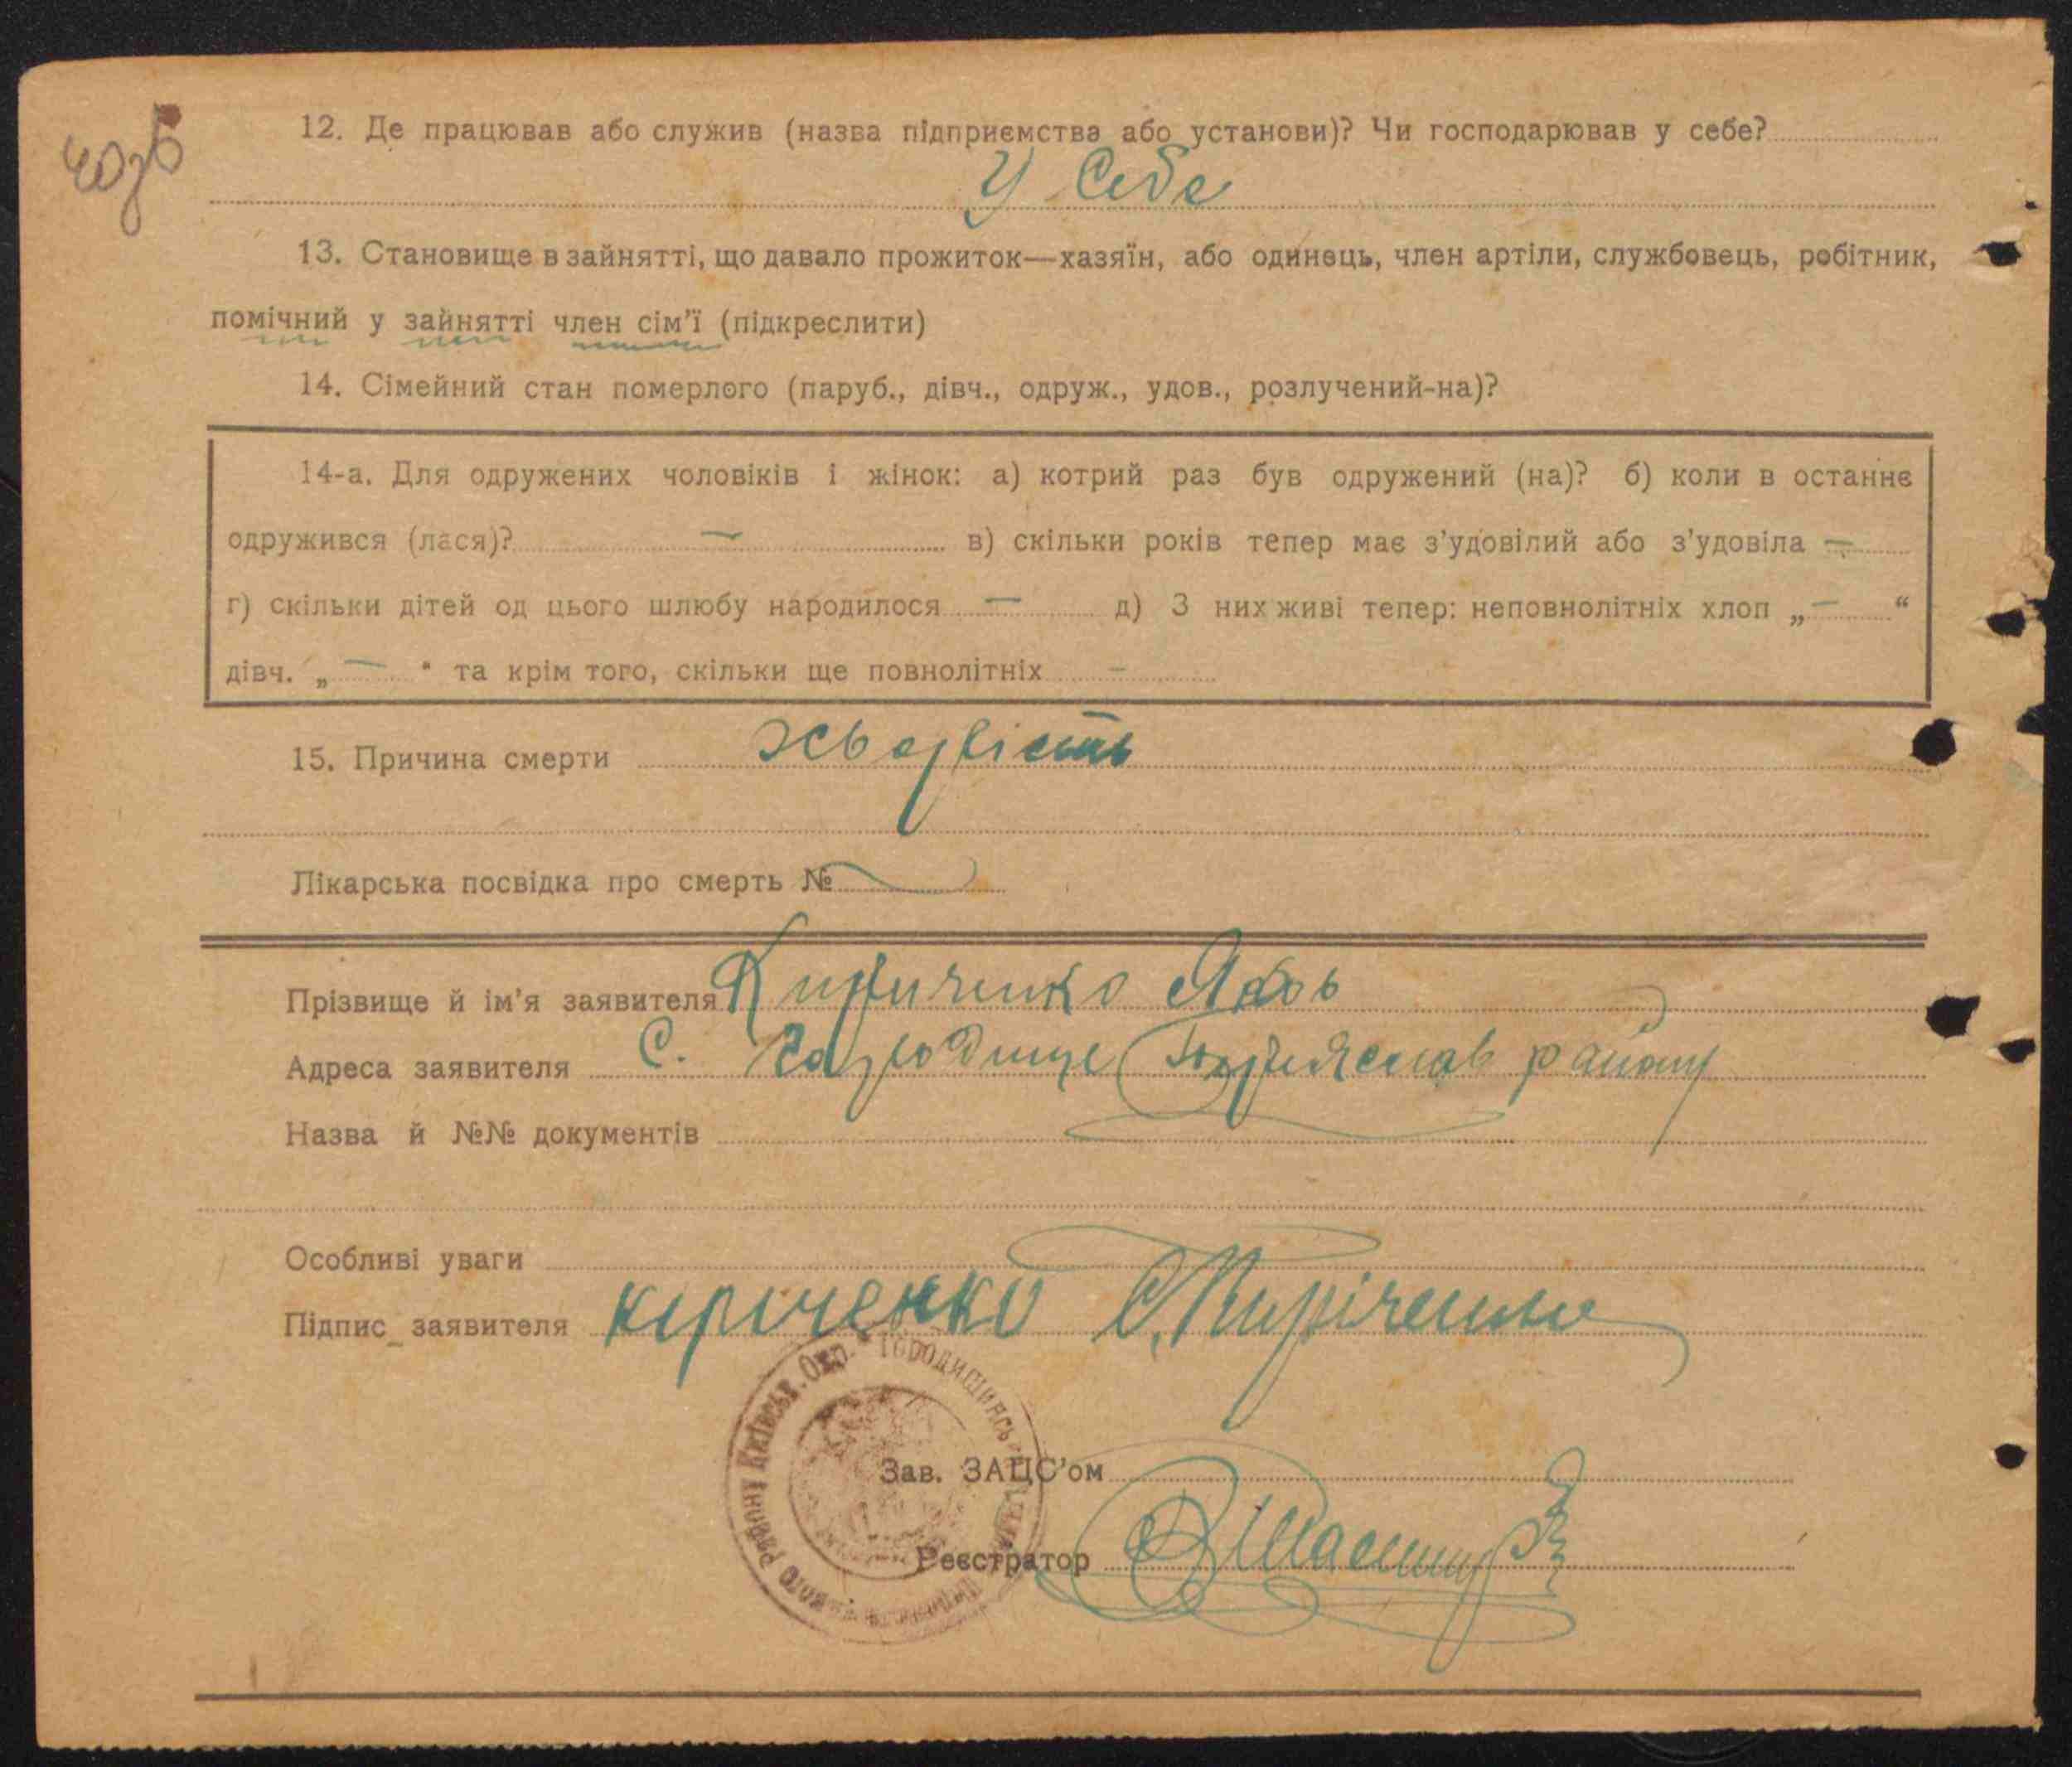 12. Де працював або служив (назва підприємства або установи)? Чи господарював у себе?
У себе
13. Становище в зайнятті, що давало прожиток—хазяїн, або одинець, член артіли, службовець, робітник,
помічний у зайнятті член сім'ї (підкреслити)
14. Сімейний стан померлого (паруб., дівч., одруж., удов., розлучений-на)?
14-а. Для одружених чоловіків і жінок: а) котрий раз був одружений (на)? б) коли в останнє
одружився (лася)? — в) скільки років тепер має з'удовілий або з'удовіла —
г) скільки дітей од цього шлюбу народилося — д) З них живі тепер: неповнолітніх хлоп „—“
дівч. „—“ та крім того, скільки ще повнолітніх —
15. Причина смерти
Лікарська посвідка про смерть №
Прізвище й ім'я заявителя Кириченко Яков
Адреса заявителя с. району
Назва й №№ документів
Особливі уваги
Підпис заявителя кіріченко
Зав. ЗАЦС'ом
Реєстратор
району Київськ. Окр.